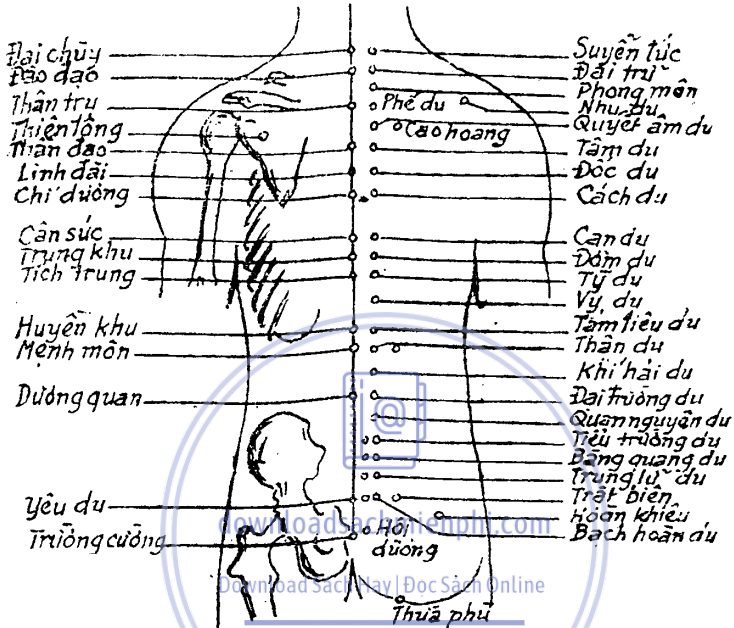 Đại chũy
Đào đạo
Thân trụ
Thiên tông
Thần đạo
Linh đài
Chí dương
Cân súc
Trung khu
Tích trung
Huyền khu
Mệnh môn
Dương quan
Yêu du
Trường cường
Phế du
Cao hoang
Hội dương
Thừa phù
Suyễn tức
Đại trữ
Phong môn
Nhu du
Quyết âm du
Tâm du
Đốc du
Cách du
Can du
Đởm du
Tỹ du
Vỵ du
Tam tiêu du
Thận du
Khí hải du
Đại trường du
Quan nguyên du
Tiểu trường du
Bàng quang du
Trung lữ du
Trật biên
Hoàn khiêu
Bạch hoàn du
downloadsachmienphi.com
Download Sách Hay | Đọc Sách Online